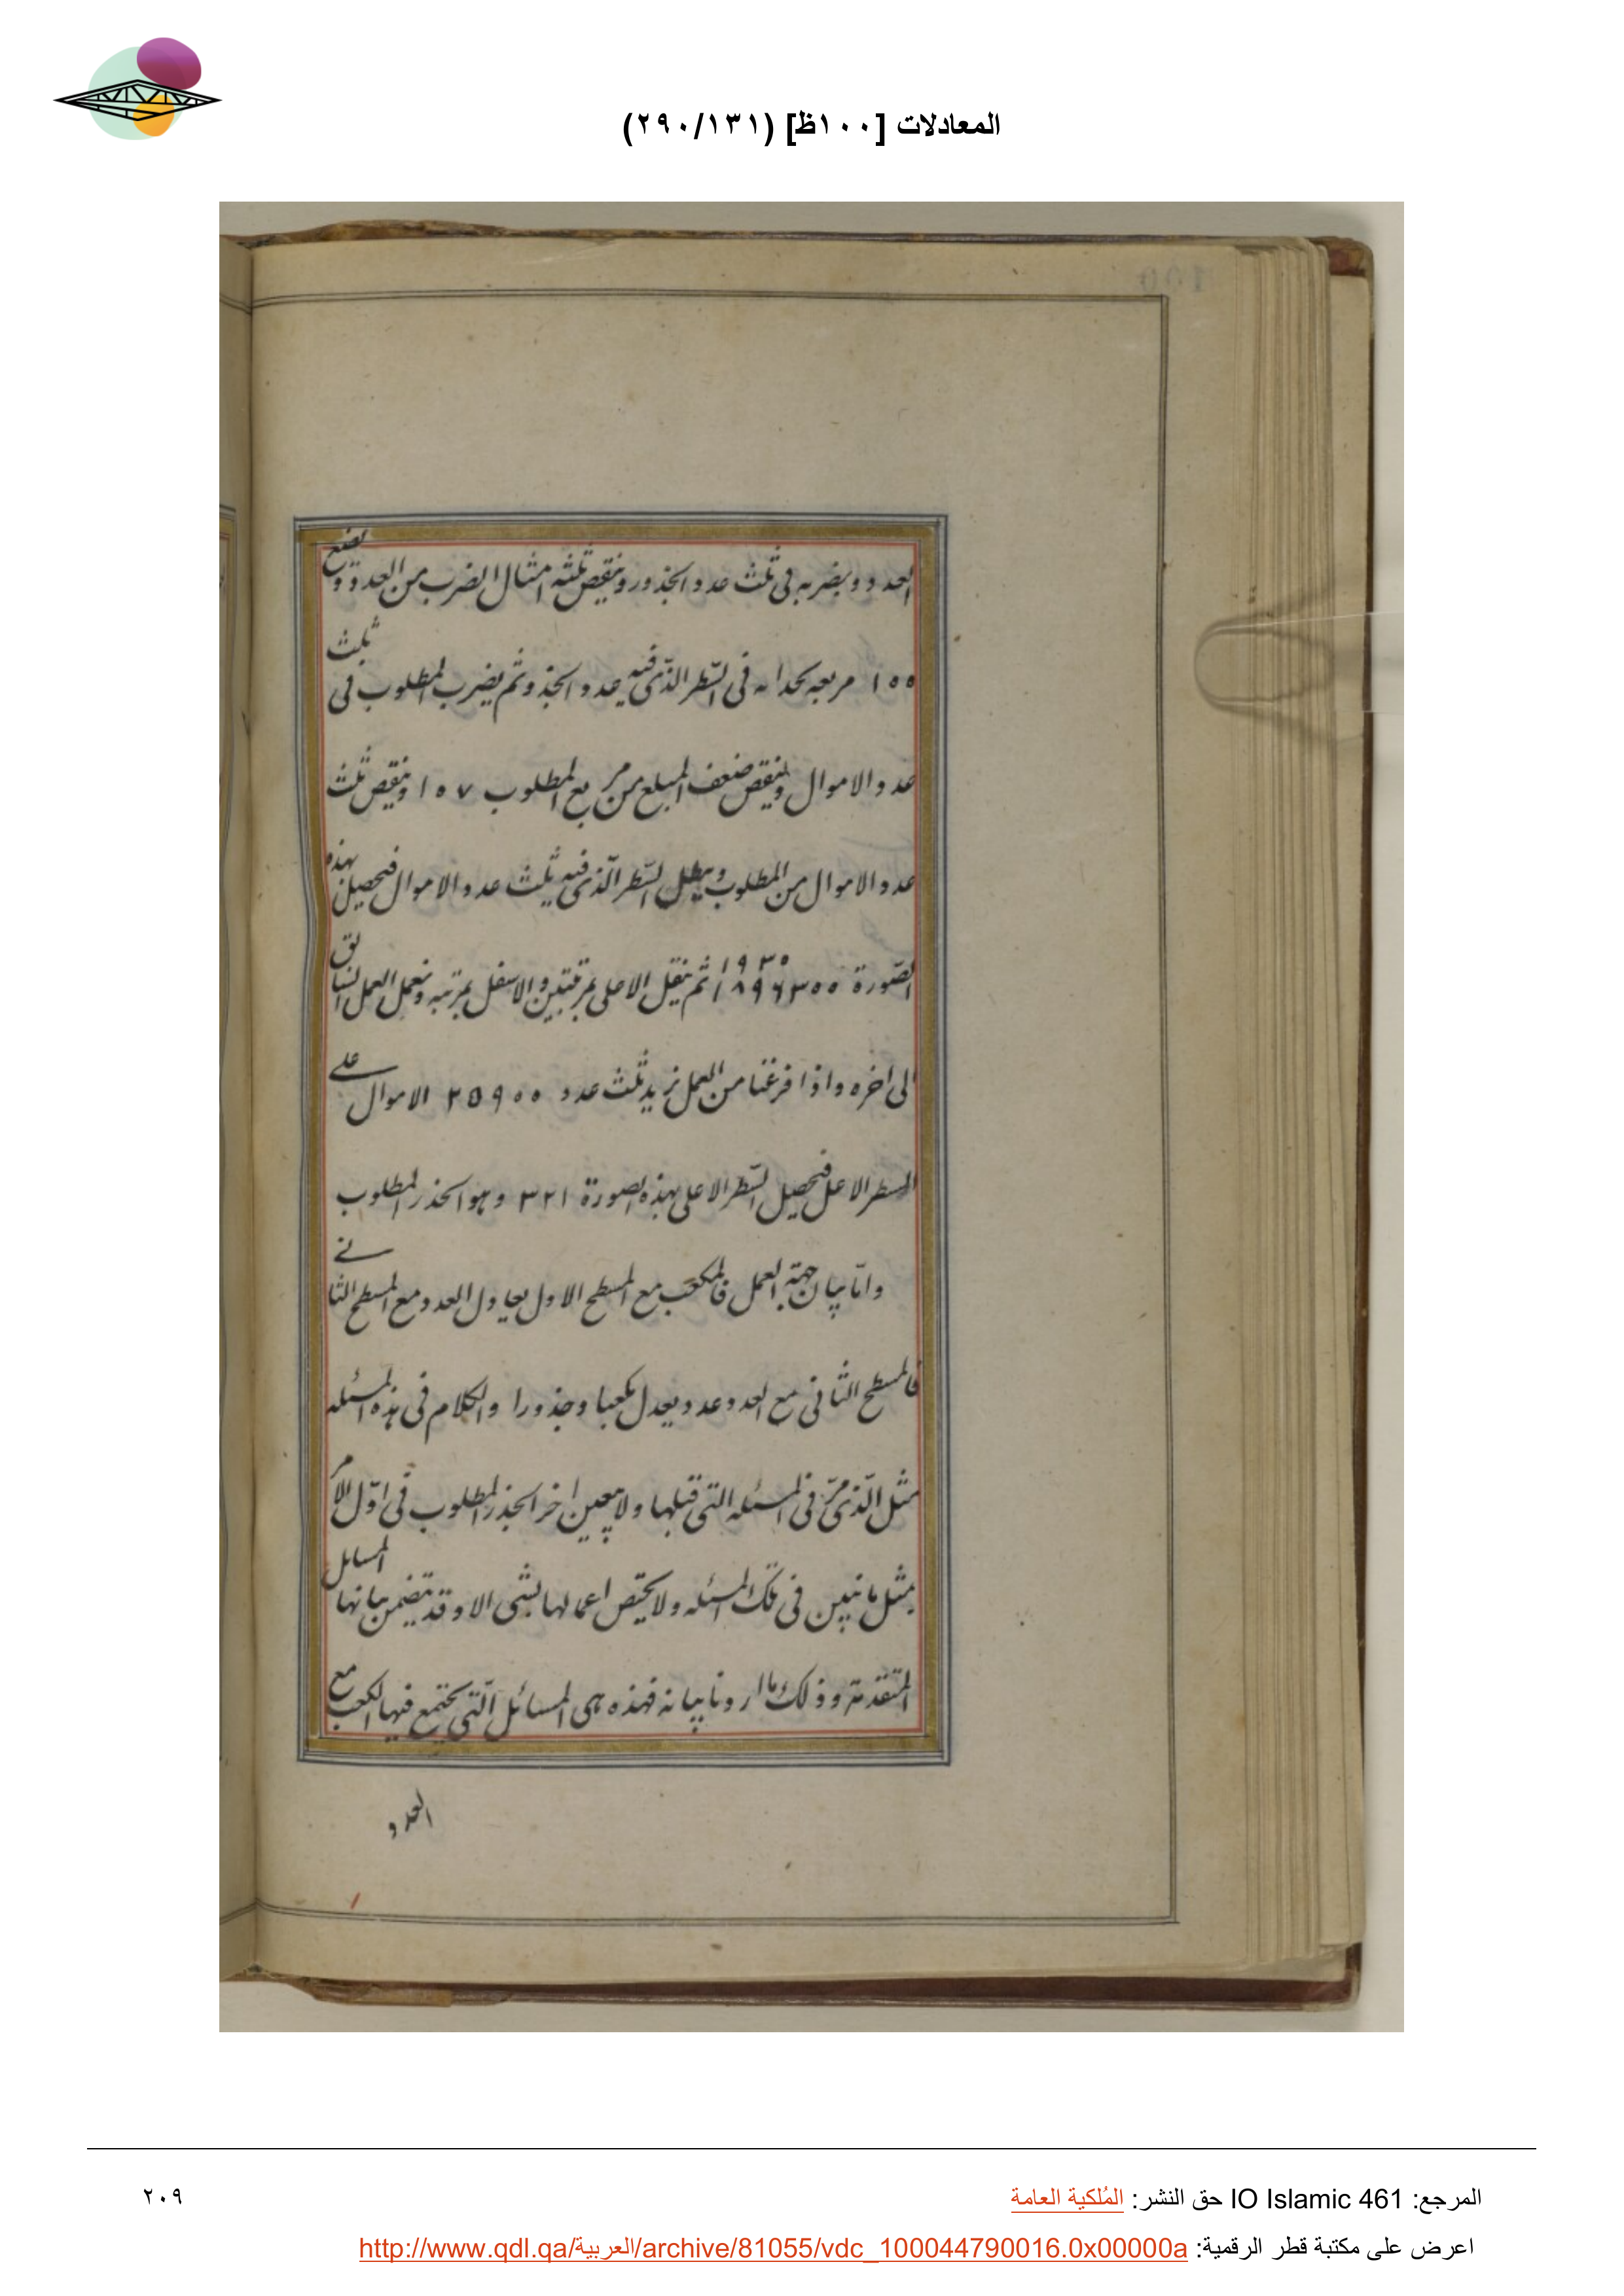 المعادلات [١٠٠ظ] (٢٩٠/١٣١)
العدد ويضربه فى ثلث عدد الجذور وينقص ثلثه امثال الضرب من العدد ويضع
مربعه بحذائه فى السّطر الذّى فيه عدد الجذور ثم يضرب المطلوب فى ثلث
عدد الاموال وينقص ضعف المبلغ من مربع المطلوب ١٥٧ وينقص ثلث
عدد الاموال من المطلوب ويبطل السّطر الّذى فيه ثلث عدد الاموال فيحصل بهذه
الصّورة ثم ينقل الاعلى بمرتبتين والاسفل بمرتبه ونعمل العمل السابق
الى اخره واذا فرغنا من العمل نزيد ثلث عدد ٢٥٩٠٠ الاموال على
السطر الاعلى فيحصل السّطر الاعلى بهذه الصورة ٣٢١ وهو الجذر المطلوب
وامّا بيان جهة العمل فالمكعب مع المسطح الاول يعادل العدد مع المسطح الثانى
فالمسطح الثانى مع العدد عدد يعدل مكعبا وجذورا والكلام فى هذه المسئله
مثل الّذى مرّ فى المسئله التى قبلها ولا يتعين اخر الجذر المطلوب فى اوّل الامر
بمثل ما تبين فى تلك المسئله ولا يختص اعمالها بشى الا وقد تضمن بيانها المسايل
المتقدمة وذلك ما اردنا بيانه فهذه هى المسائل الّتى يجتمع فيها المكعب مع
العدد
المرجع: IO Islamic 461 حق النشر: المُلكية العامة
٢٠٩
اعرض على مكتبة قطر الرقمية: http://www.qdl.qa/العربية/archive/81055/vdc_100044790016.0x00000a